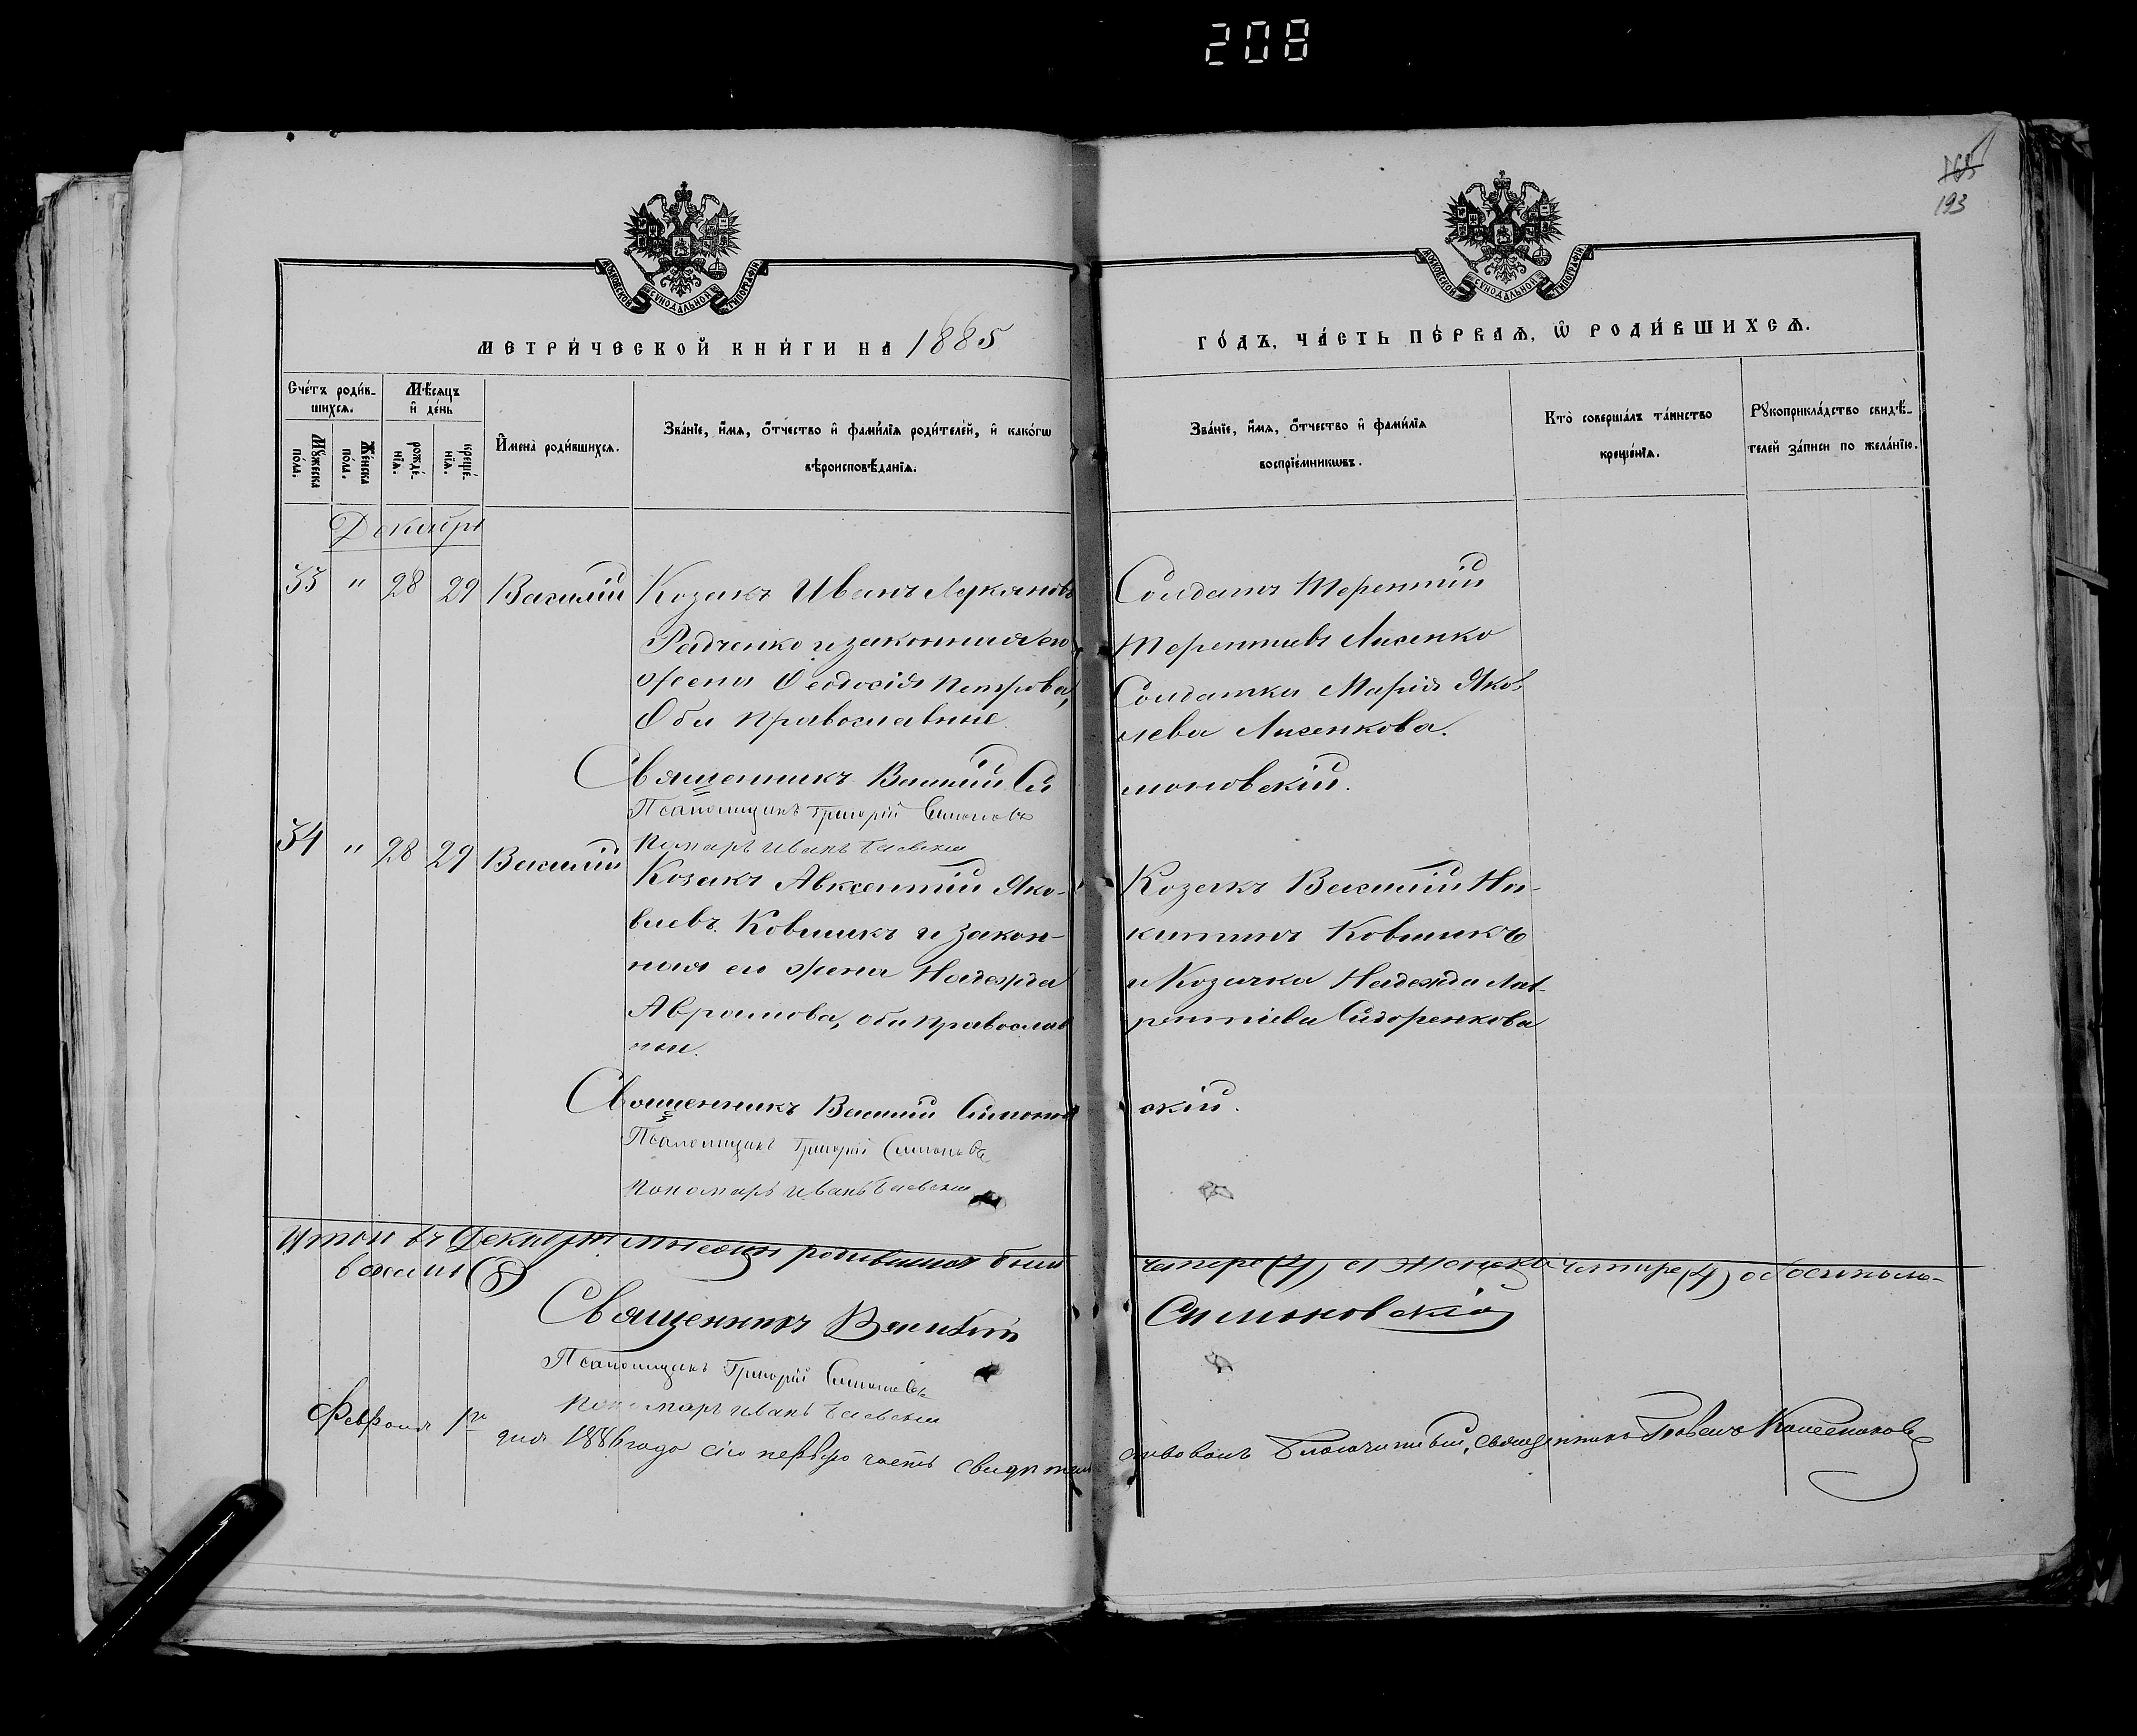 208
165
193
МОСКОВСКОЙ СѴНОДАЛЬНОЙ ТИПОГРАФІИ
МОСКОВСКОЙ СѴНОДАЛЬНОЙ ТИПОГРАФІИ
МЕТРИ́ЧЕСКОЙ КНИ́ГИ НА 1885
ГО́ДЪ, ЧА́СТЬ ПЕ́РВАѦ, Ѡ РОДИ́ВШИХСѦ.
Сче́тъ роди́в-
шихсѧ.
Мꙋ́жеска по́ла.
Же́нска по́ла.
Мѣ́сѧцъ
и҆ де́нь
рожде́-нїѧ.
креще́-нїѧ.
И҆мена̀ роди́вшихсѧ.
Зва́нїе, и҆́мѧ, ѻ҆́тчество и҆ фами́лїѧ роди́телей, и҆ како́гѡ
вѣроисповѣ́данїѧ.
Зва́нїе, и҆́мѧ, ѻ҆́тчество и҆ фами́лїѧ
воспрїе́мникѡвъ.
Кто̀ соверша́лъ та́инство
креще́нїѧ.
Рꙋкоприкла́дство свидѣ́-
телей за́писи по жела́нїю.
Декабрь
33 " 28 29 Василій
Козакъ Иванъ Лукяновъ
Радченко и законная его
жена Феодосія Петрова,
Оба православные.
Солдатъ Терентій
Терентиевъ Лисенко
Солдатка Марія Яков-
лева Лисенкова.
Священникъ Василій Си
моновскій.
Псаломщикъ Григорій Симоновъ
Пономарь Иванъ Баевскій
34 " 28 29 Василій
Козакъ Авксентій Яко-
влевъ Ковшикъ и закон-
ная его жена Надежда
Аврамова, оба православ
ные.
Козакъ Василій Ни-
китинъ Ковшикъ
и Козачка Надежда Лав-
рентіева Сидоренкова
Священникъ Василій Симонов
скій.
Псаломщикъ Григорій Симоновъ
Пономарь Иванъ Баевскій
Итого въ Декабрѣ мѣсяцѣ родившихся было
четыре (4) а Женска четыре (4) обоего пола-
восемь (8)
Священникъ Василій
Симоновскій
Псаломщикъ Григорій Симоновъ
Пономарь Иванъ Баевскій
Февраля 1го дня 1886 года сію первую часть свидѣтель
ствовалъ Благочинный, священникъ Павелъ Колесниковъ